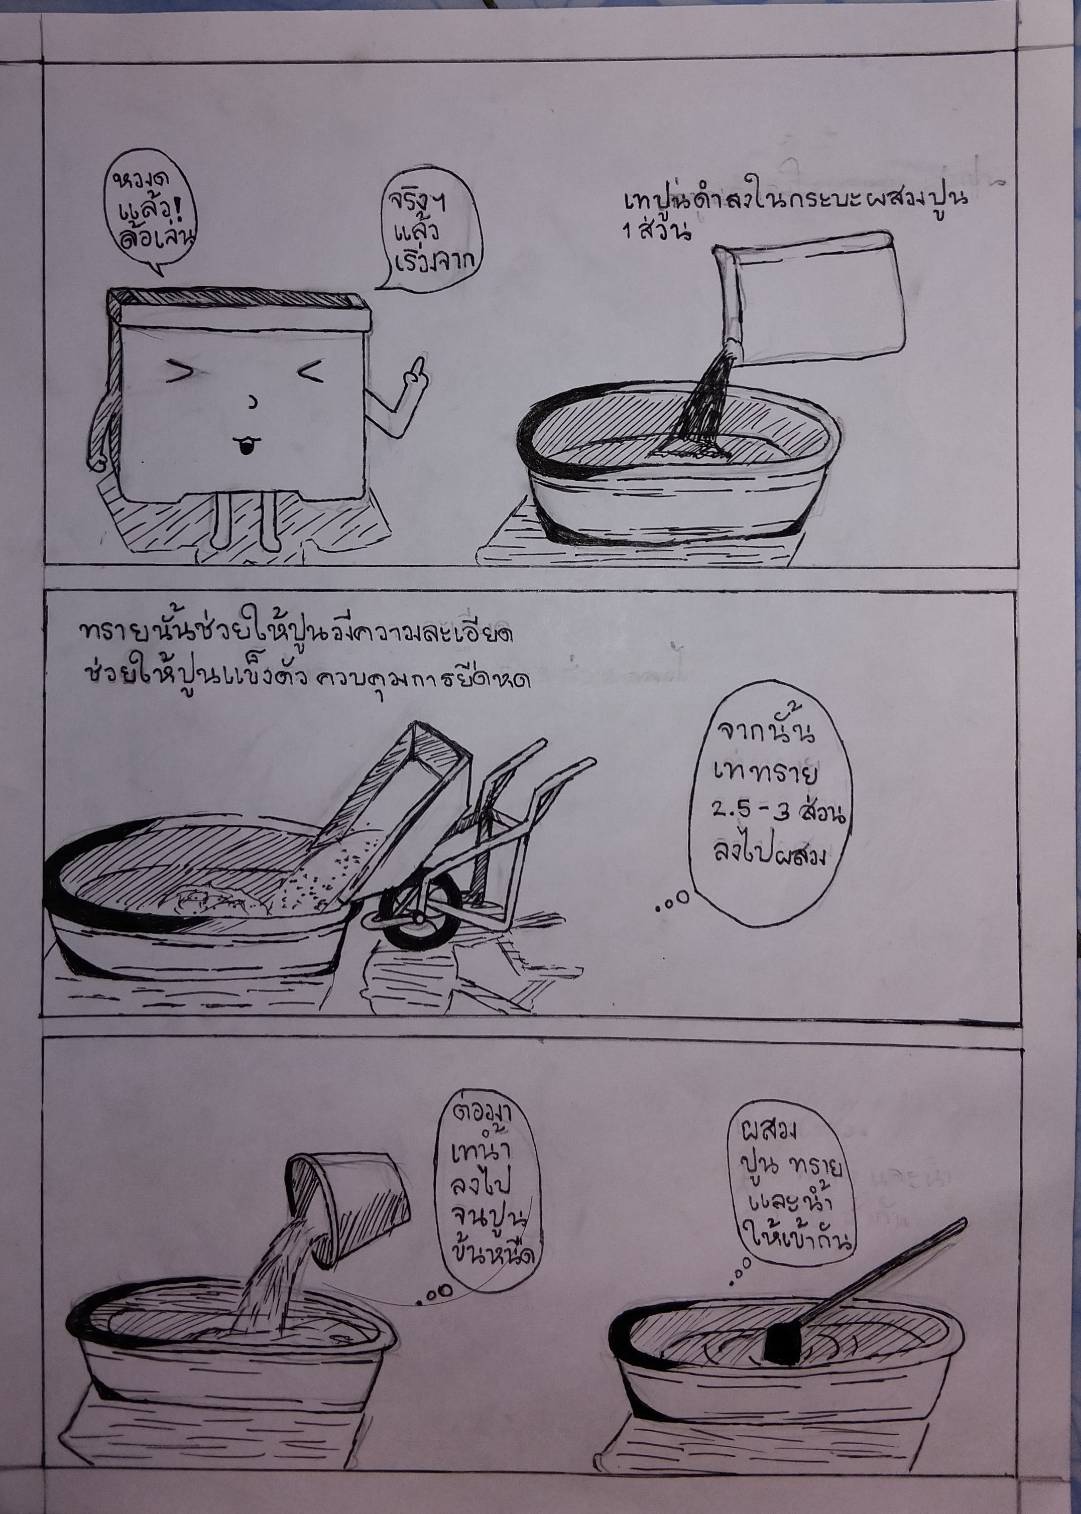 หวงด
แล้ว!
ล้อเล่น
จริงๆ
แล้ว
เริ่มจาก
เทปูนดำลงในกระบะผสมปูน
1 ส่วน
ทรายนั้นช่วยให้ปูนมีความละเอียด
ช่วยให้ปูนแข็งตัว ควบคุมการยืดหด
จากนั้น
เททราย
2.5-3 ส่วน
ลงไปผสม
ต่อมา
เทน้ำ
ลงไป
จนปูน
ข้นหนืด
ผสม
ปูน ทราย
และน้ำ
ให้เข้ากัน